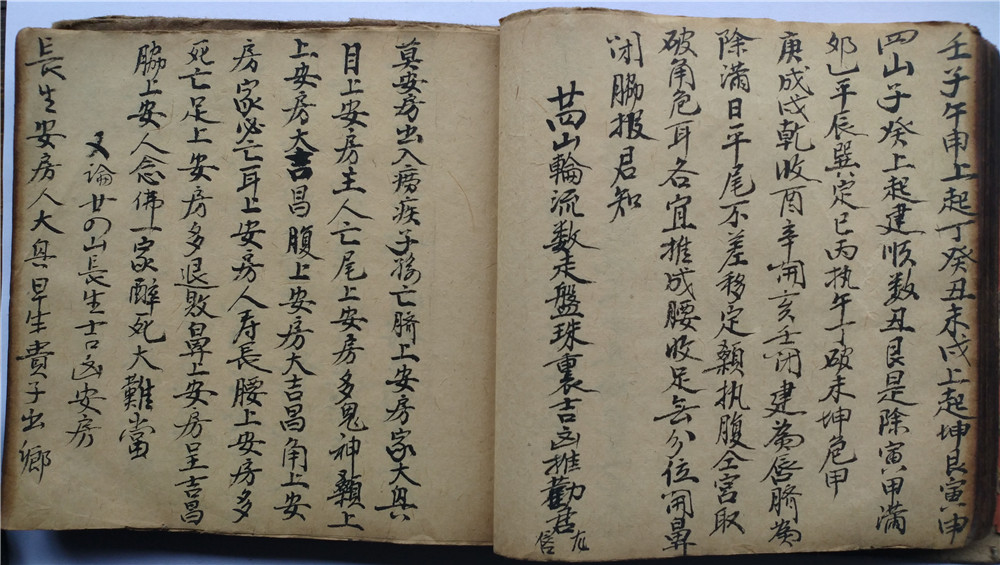 壬子午申上起丁癸丑未戌上起坤艮寅申
四山子癸上起建順数丑艮是除寅甲满
夘乙平辰巽定巳丙执午丁破未坤危甲
庚成戌乾收酉辛開亥壬闭建為唇臍為
除满日平尾不差移定額执腹仝宫取
破角危耳各宜推成腰收足会分位開鼻
闭脇报君知
廿四山輪流数走盤珠裏吉凶推勸君
莫安房出入痨疾子孫亡臍上安房家大興
目上安房主人亡尾上安房多鬼神額上
上安房大吉昌腹上安房大吉昌角上安
房家必亡耳上安房人寿長腰上安房多
死亡足上安房多退败鼻上安房呈吉昌
脇上安人念佛一家醉死大難當
又論廿四山長生吉凶安房
長生安房人大興早生貴子出鄉